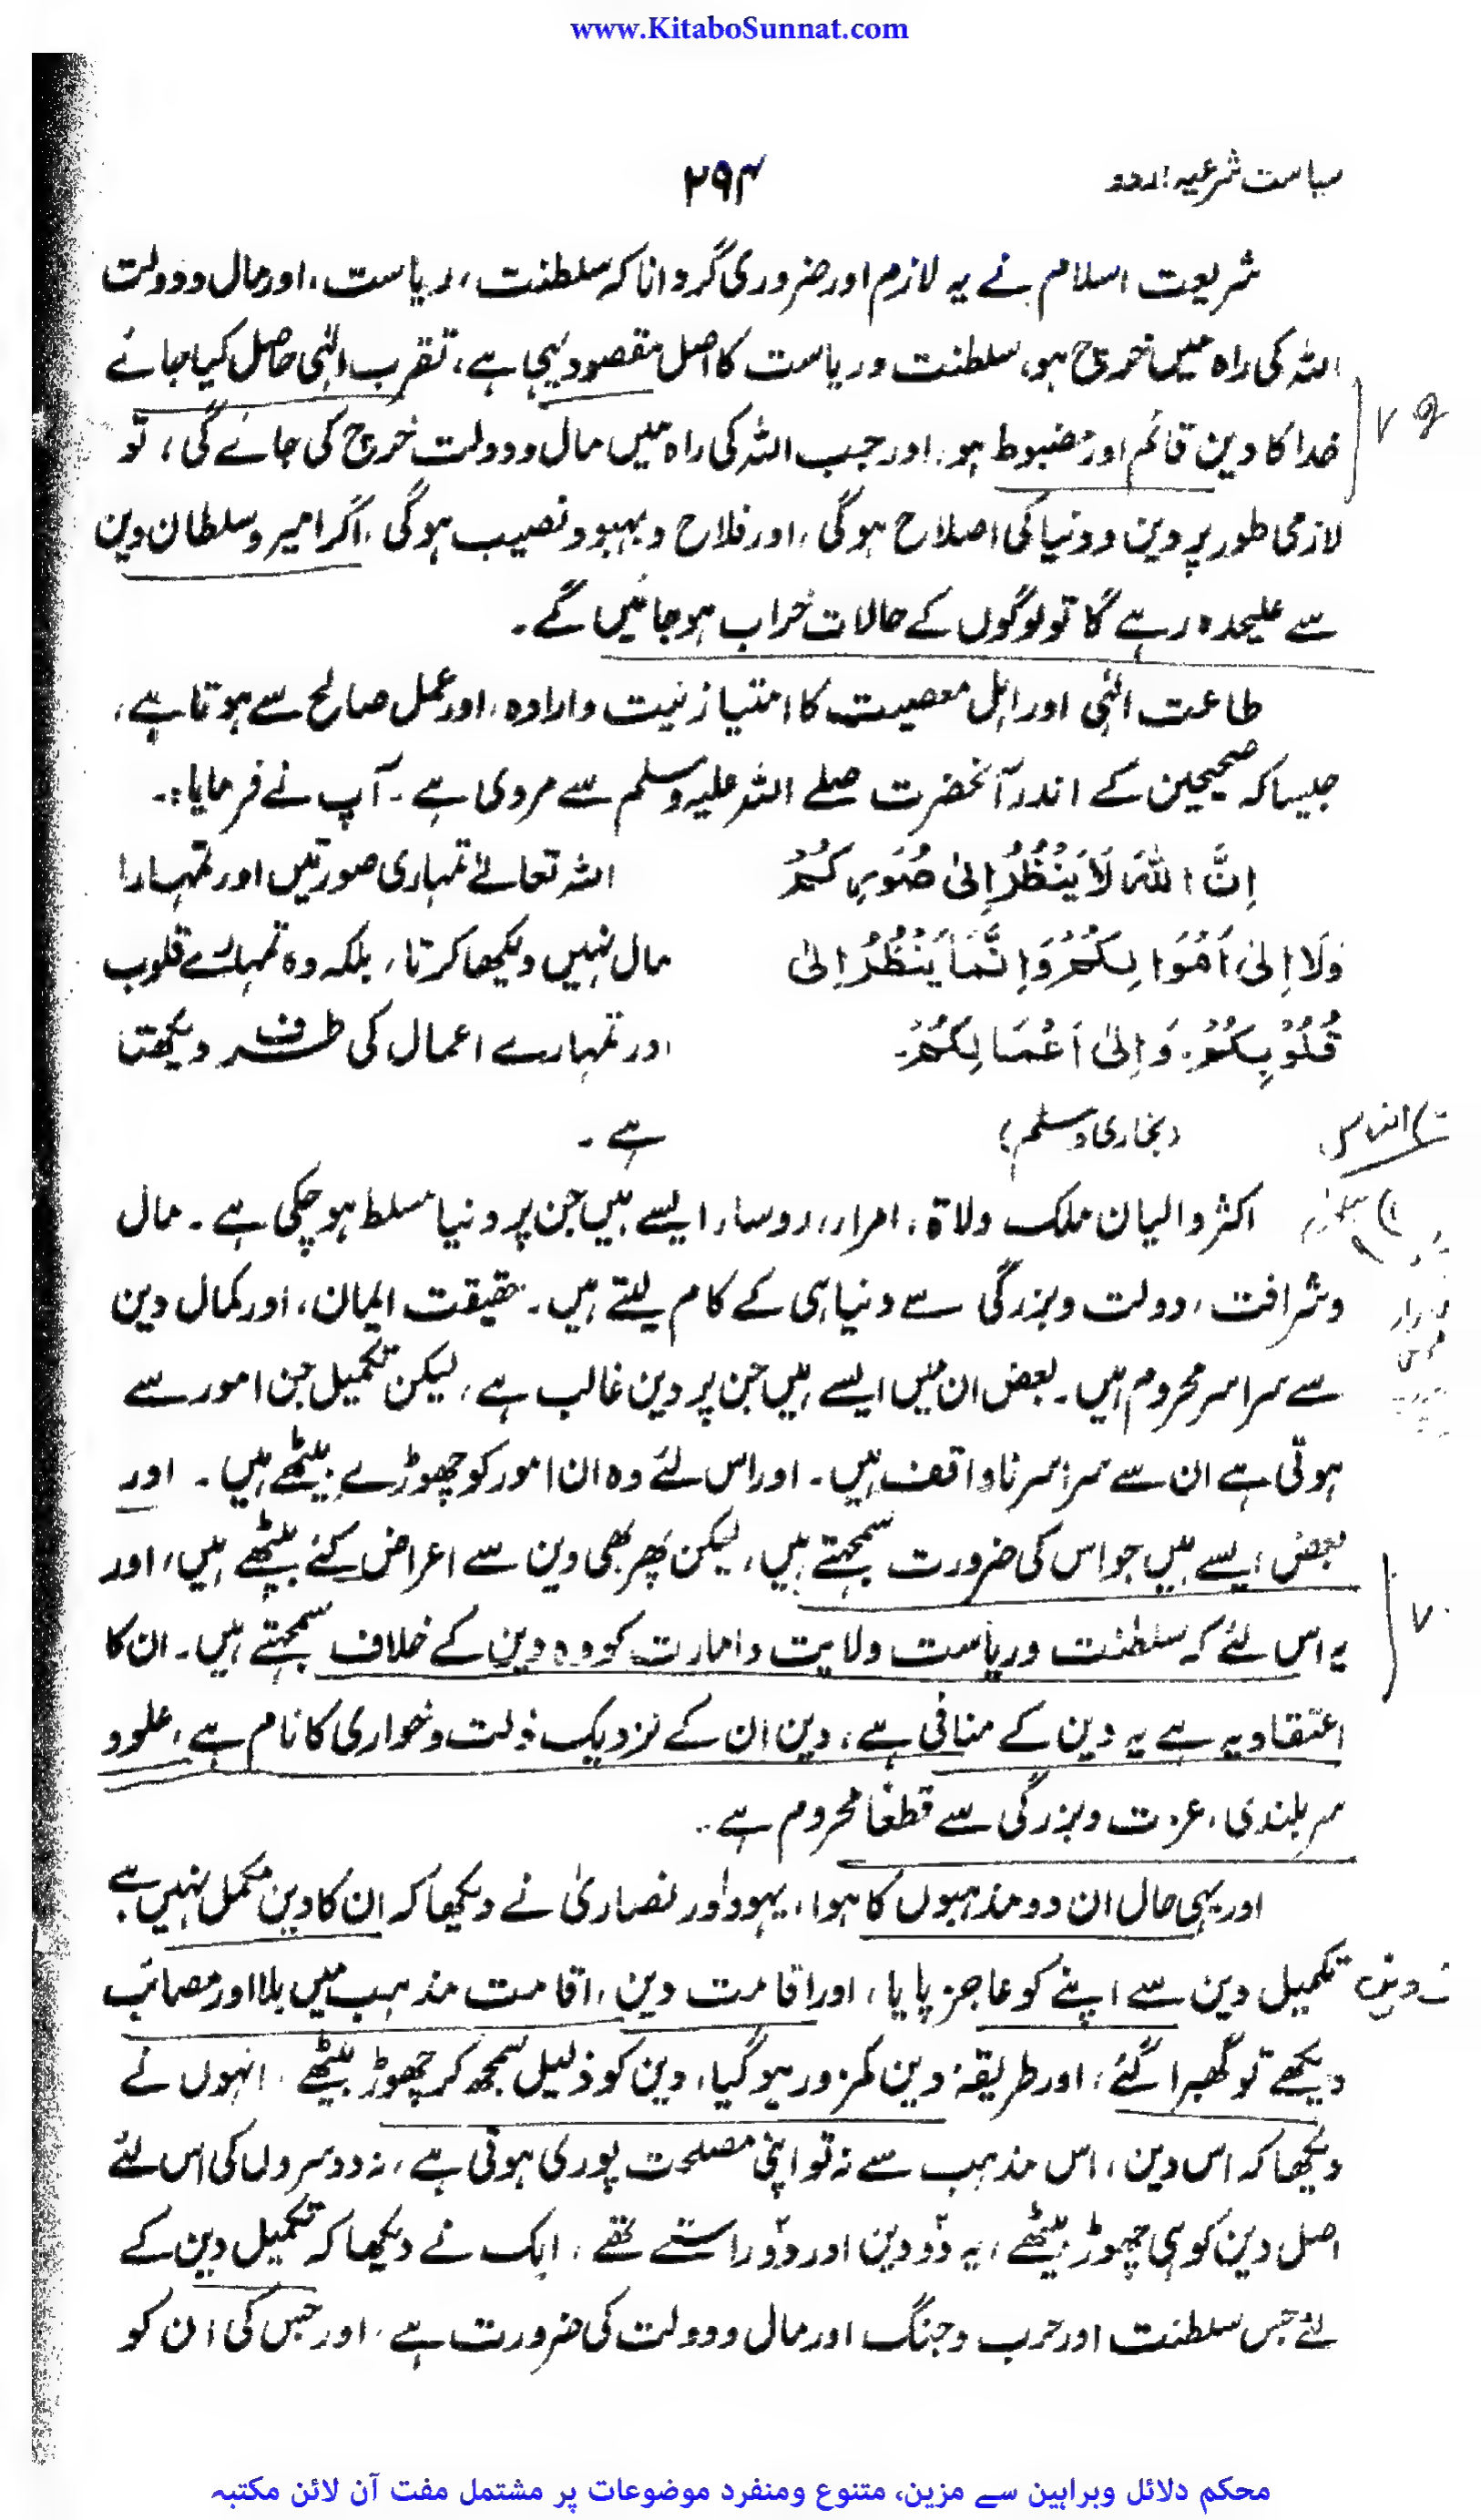 www.KitaboSunnat.com
سیاست شرعیہ اردو
۲۹۴
شریعت اسلام نے یہ لازم اور ضروری گردانا کہ سلطنت، ریاست، اور مال و دولت
اللہ کی راہ میں خرچ ہو، سلطنت و ریاست کا اصل مقصود یہی ہے، تقرب الٰہی حاصل کیا جائے
خدا کا دین قائم اور مضبوط ہو، اور جب اللہ کی راہ میں مال و دولت خرچ کی جائے گی، تو
لازمی طور پر دین و دنیا کی اصلاح ہوگی، اور فلاح و بہبود نصیب ہوگی، اگر امیر و سلطان دین
سے علیحدہ رہے گا تو لوگوں کے حالات خراب ہوجائیں گے۔
طاعت الٰہی اور اہل معصیت کا امتیاز نیت و ارادہ، اور عمل صالح سے ہوتا ہے،
جیسا کہ صحیحین کے اندر آنحضرت صلے اللہ علیہ وسلم سے مروی ہے۔ آپ نے فرمایا:۔
اِنَّ اللّٰہَ لَا یَنْظُرُ اِلیٰ صُوَرِکُمْ
وَلَا اِلیٰ اَمْوَالِکُمْ وَاِنَّمَا یَنْظُرُ اِلیٰ
قُلُوْبِکُمْ۔ وَاِلیٰ اَعْمَالِکُمْ۔
(بخاری و مسلم)
اللہ تعالےٰ تمہاری صورتیں اور تمہارا
مال نہیں دیکھا کرتا، بلکہ وہ تمہارے قلوب
اور تمہارے اعمال کی طرف دیکھتا
ہے۔
اکثر والیان ملک ولاۃ، امراء، روساء ایسے ہیں جن پر دنیا مسلط ہوچکی ہے۔ مال
و شرافت، دولت و بزرگی سے دنیا ہی کے کام لیتے ہیں۔ حقیقت ایمان، اور کمال دین
سے سراسر محروم ہیں۔ بعض ان میں ایسے ہیں جن پر دین غالب ہے، لیکن تکمیل جن امور سے
ہوتی ہے ان سے سراسر ناواقف ہیں۔ اور اس لئے وہ ان امور کو چھوڑے بیٹھے ہیں۔ اور
بعض ایسے ہیں جو اس کی ضرورت سمجھتے ہیں، لیکن پھر بھی دین سے اعراض کئے بیٹھے ہیں، اور
یہ اس لئے کہ سلطنت و ریاست ولایت و امارت کو وہ دین کے خلاف سمجھتے ہیں۔ ان کا
اعتقاد یہ ہے یہ دین کے منافی ہے، دین ان کے نزدیک ذلت و خواری کا نام ہے، علو و
سربلندی، عزت و بزرگی سے قطعًا محروم ہے۔
اور یہی حال ان دو مذہبوں کا ہوا، یہود اور نصاریٰ نے دیکھا کہ ان کا دین مکمل نہیں ہے
تکمیل دین سے اپنے کو عاجز پایا، اور اقامت دین، اقامت مذہب میں بلا اور مصائب
دیکھے تو گھبرا گئے، اور طریقۂ دین کمزور ہوگیا، دین کو ذلیل سمجھ کر چھوڑ بیٹھے، انہوں نے
دیکھا کہ اس دین، اس مذہب سے نہ تو اپنی مصلحت پوری ہوتی ہے، نہ دوسروں کی اس لئے
اصل دین کو ہی چھوڑ بیٹھے، یہ دو دین اور دو راستے تھے، ایک نے دیکھا کہ تکمیل دین کے
لئے جس سلطنت اور حرب و جنگ اور مال و دولت کی ضرورت ہے، اور جس کی ان کو
محکم دلائل وبراہین سے مزین، متنوع ومنفرد موضوعات پر مشتمل مفت آن لائن مکتبہ